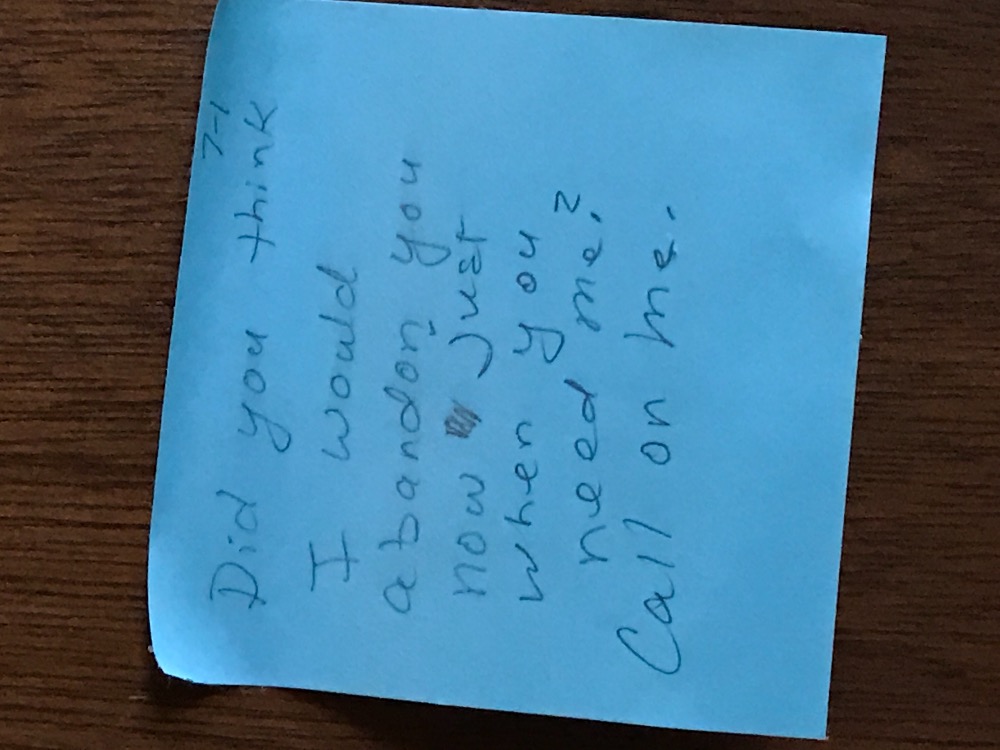 7-1
Did you think
I would
abandon you
now just
when you
need me?
Call on me.